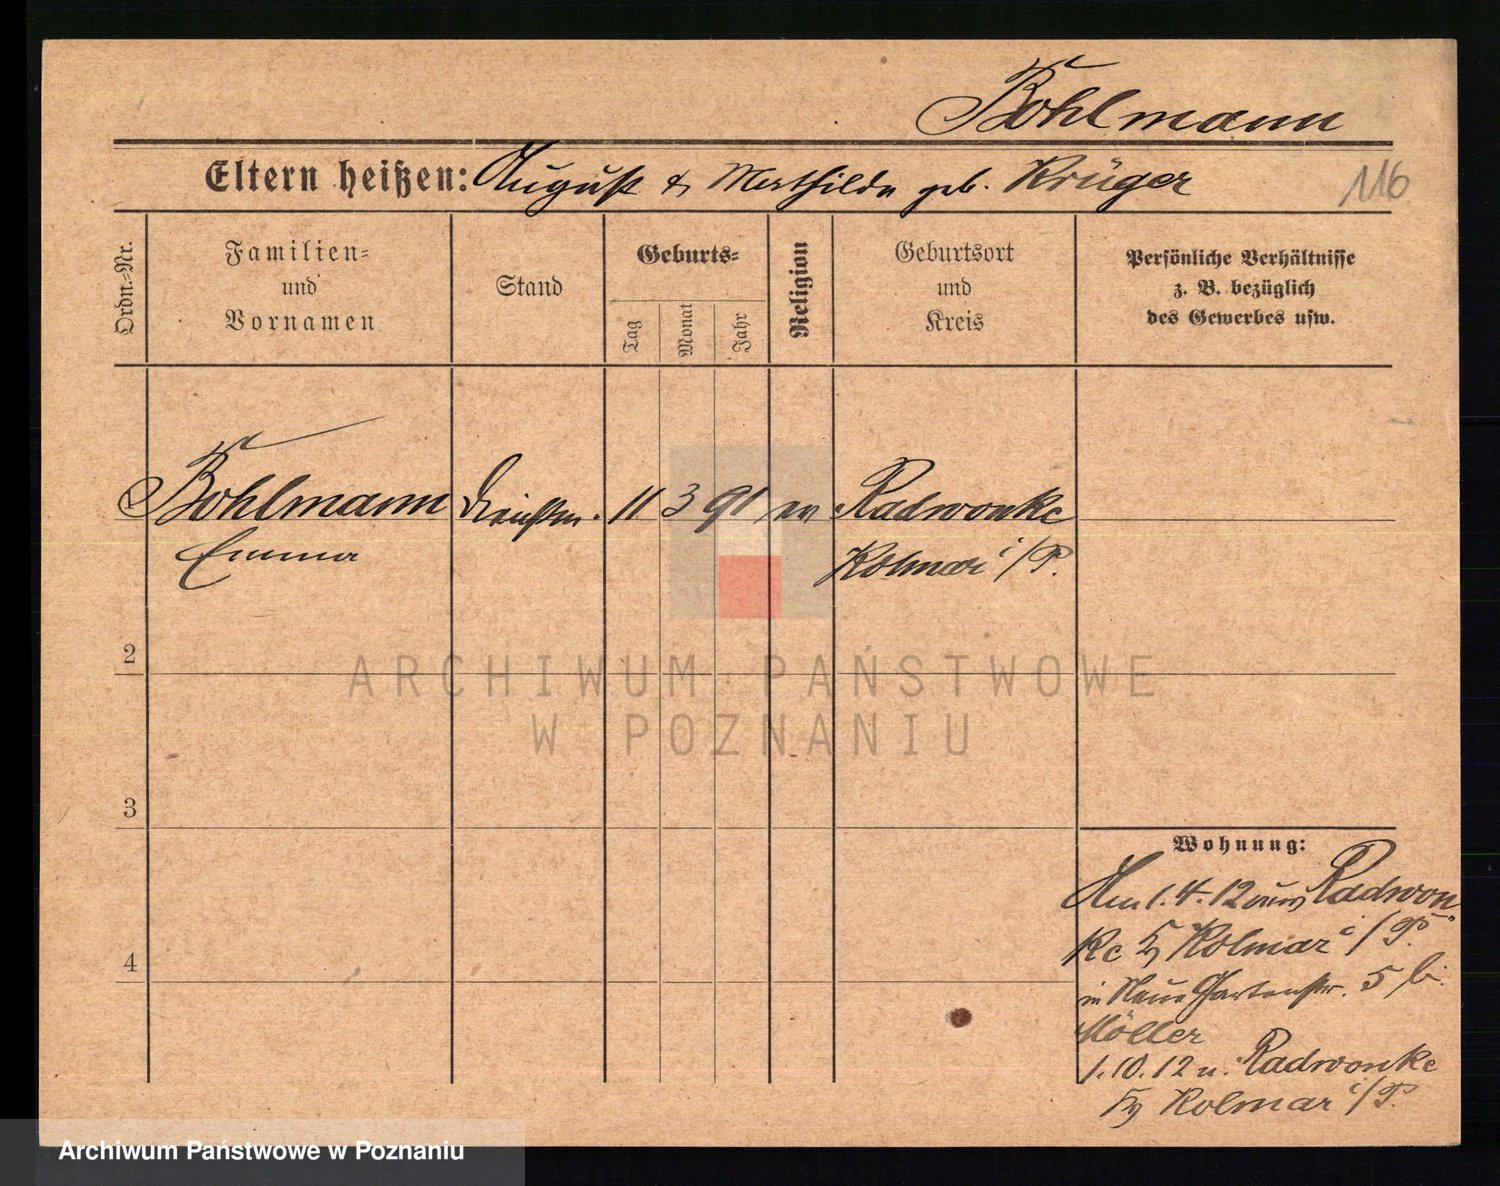 Bohlmann
Eltern heißen: August & Mathilde geb. Krüger
116
Ordn.-Nr.
Familien-
und
Vornamen
Stand
Geburts-
Tag
Monat
Jahr
Religion
Geburtsort
und
Kreis
Persönliche Verhältnisse
z. B. bezüglich
des Gewerbes usw.
Bohlmann Dienstm. 11 3 91 ev Radwonke
Emma Kolmar i/P.
2
3
4
Wohnung:
Am 1.4.12 aus Radwon
ke Kolmar i/P.
in Neue Gartenstr. 5 b.
Möller
1.10.12 n. Radwonke
Kolmar i/P.
ARCHIWUM PAŃSTWOWE
W POZNANIU
Archiwum Państwowe w Poznaniu